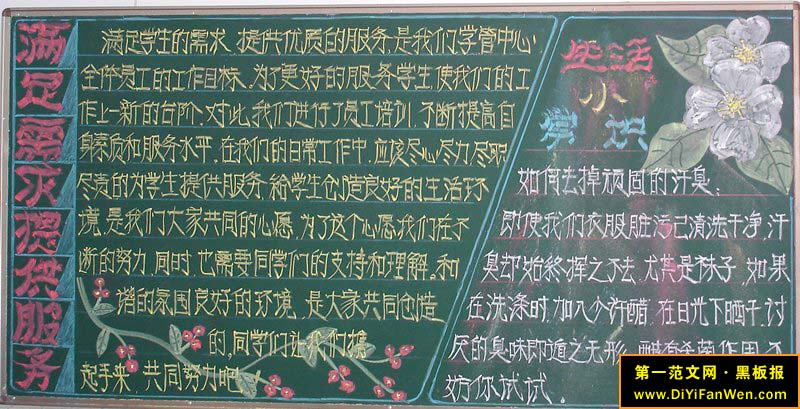 满足需求提供服务
满足学生的需求,提供优质的服务,是我们学管中心
全体员工的工作目标。为了更好的服务学生,使我们的工
作上一新的台阶,对此,我们进行了员工培训,不断提高自
身素质和服务水平。在我们的日常工作中,应该尽心尽力尽职
尽责的为学生提供服务,给学生创造良好的生活环
境,是我们大家共同的心愿,为了这个心愿我们在不
断的努力,同时,也需要同学们的支持和理解。和
谐的氛围良好的环境,是大家共同创造
的,同学们让我们携
起手来,共同努力吧!
生活
小
常识
如何去掉顽固的汗臭:
即使我们衣服脏污己清洗干净,汗
臭却始终挥之不去,尤其是袜子,如果
在洗涤时,加入少许醋,在日光下晒干,讨
厌的臭味即遁之无形,醋有杀菌作用,不
妨你试试.
第一范文网·黑板报
www.DiYiFanWen.com